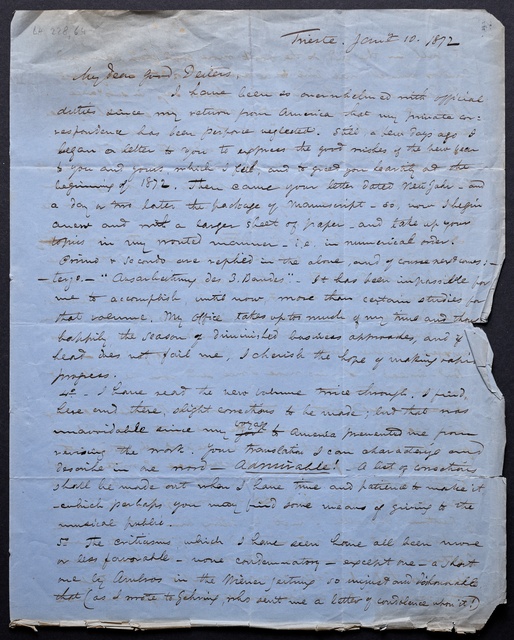 Trieste. Jan'y 10. 1872
My dear good Deiters,
I have been so overwhelmed with official
duties since my return from America that my private cor-
respondence has been perforce neglected. Still a few days ago I
began a letter to you to express the good wishes of the new year
to you and yours, which I feel, and to greet you heartily at the
beginning of 1872. Then came your letter dated Neujahr - and
a day or two later the package of Manuscript - so, now I begin
anew and with a larger sheet of paper, and take up your
topics in my wonted manner - i.e. in numerical order.
Primo & secondo are replied in the above, and of course need
- terzo. - "Ausarbeitung des 3. Bandes" - It has been impossible for
me to accomplish until now more than certain studies for
that volume. My office takes up too much of my time and
happily the season of diminished business approaches, and if
head does not fail me, I cherish the hope of making rapid
progress.
4o - I have read the new volume twice through. I find,
here and there, slight corrections to be made; but that was
unavoidable since my to America prevented me from
revising the work. Your translation I can characterize and
describe in one word - Admirable! A list of corrections
shall be made out when I have time and patience to make it
- which perhaps you may find some means of giving to the
musical public.
5o The criticisms which I have seen have all been more
or less favorable - none condemnatory - except one - a short
one by Ambros in the Wiener Zeitung so and dishonorable
that (as I wrote to Gehring, who sent me a letter of condolence upon it!)